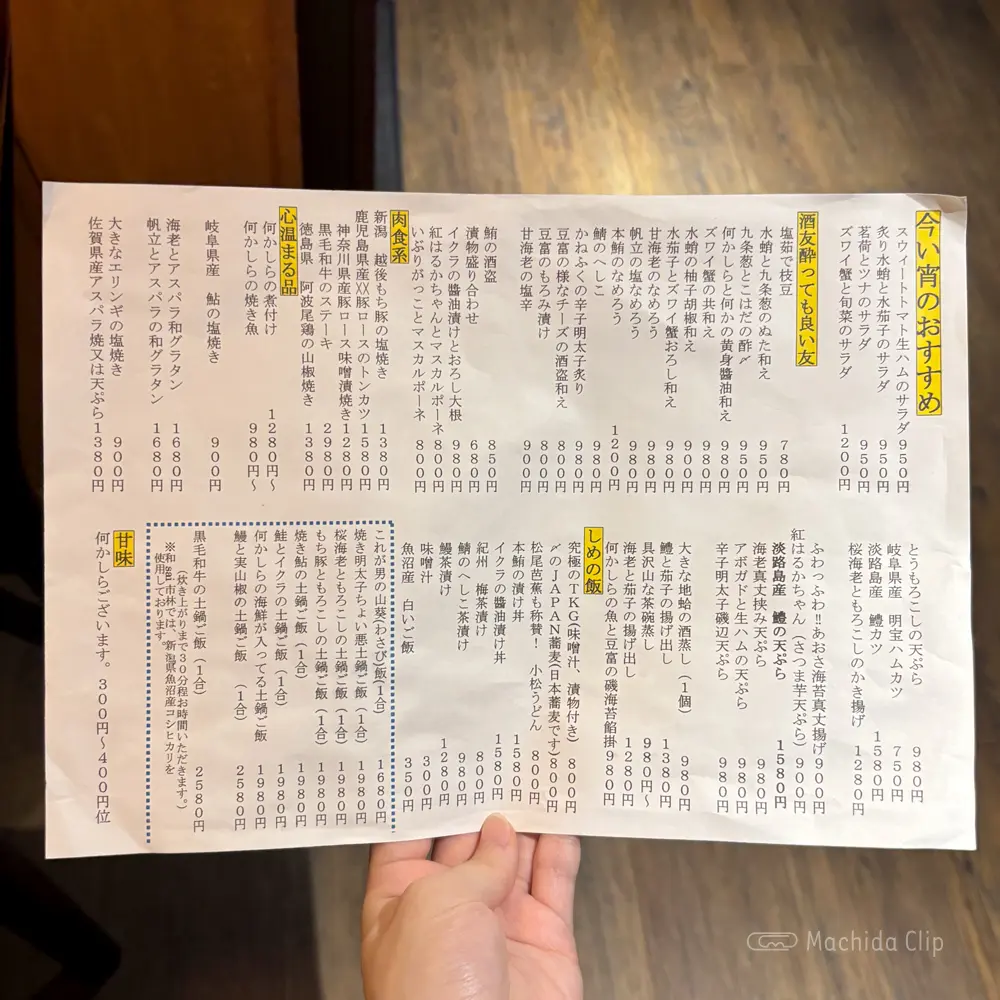 今い宵のおすすめ
スウィートトマト生ハムのサラダ 950円
炙り水蛸と水茄子のサラダ 950円
茗荷とツナのサラダ 950円
ズワイ蟹と旬菜のサラダ 1200円
酒友酔っても良い友
塩茹で枝豆 780円
水蛸と九条葱のぬた和え 950円
九条葱とこはだの酢〆 950円
何かしらと何かの黄身醤油和え 980円
ズワイ蟹の共和え 980円
水蛸の柚子胡椒和え 900円
水茄子とズワイ蟹おろし和え 980円
甘海老のなめろう 980円
帆立の塩なめろう 980円
本鮪のなめろう 1200円
鯖のへしこ 980円
かねふくの辛子明太子炙り 980円
豆富の様なチーズの酒盗和え 800円
豆富のもろみ漬け 800円
甘海老の塩辛 900円
鮪の酒盗 850円
漬物盛り合わせ 680円
イクラの醤油漬けとおろし大根 980円
紅はるかちゃんとマスカルポーネ 800円
いぶりがっことマスカルポーネ 800円
肉食系
新潟 越後もち豚の塩焼き 1380円
鹿児島県産XX豚ロースのトンカツ 1580円
神奈川県産豚ロース味噌漬焼き 1280円
黒毛和牛のステーキ 2980円
徳島県 阿波尾鶏の山椒焼き 1380円
心温まる品
何かしらの煮付け 1280円〜
何かしらの焼き魚 980円〜
岐阜県産 鮎の塩焼き 900円
海老とアスパラ和グラタン 1680円
帆立とアスパラの和グラタン 1680円
大きなエリンギの塩焼き 900円
佐賀県産アスパラ焼又は天ぷら 1380円
とうもろこしの天ぷら 980円
岐阜県産 明宝ハムカツ 750円
淡路島産 鱧カツ 1580円
桜海老ともろこしのかき揚げ 1280円
ふわっふわ‼あおさ海苔真丈揚げ 900円
紅はるかちゃん(さつま芋天ぷら) 900円
淡路島産 鱧の天ぷら 1580円
海老真丈挟み天ぷら 980円
アボガドと生ハムの天ぷら 980円
辛子明太子磯辺天ぷら 980円
大きな地蛤の酒蒸し(1個) 980円
鱧と茄子の揚げ出し 1380円
具沢山な茶碗蒸し 980円〜
海老と茄子の揚げ出し 1280円
何かしらの魚と豆富の磯海苔餡掛 980円
しめの飯
究極のTKG(味噌汁、漬物付き) 800円
〆のJAPAN蕎麦(日本蕎麦です) 800円
松尾芭蕉も称賛! 小松うどん 800円
本鮪の漬け丼 1580円
イクラの醤油漬け丼 1580円
紀州 梅茶漬け 800円
鯖のへしこ茶漬け 980円
鰻茶漬け 1280円
味噌汁 300円
魚沼産 白いご飯 350円
これが男の山葵(わさび)飯(1合) 1680円
焼き明太子ちょい悪土鍋ご飯(1合) 1980円
桜海老ともろこしの土鍋ご飯(1合) 1980円
もち豚ともろこしの土鍋ご飯(1合) 1980円
焼き鮎の土鍋ご飯(1合) 1980円
鮭とイクラの土鍋ご飯(1合) 1980円
何かしらの海鮮が入ってる土鍋ご飯 1980円
鰻と実山椒の土鍋ご飯 (1合) 2580円
黒毛和牛の土鍋ご飯(1合) 2580円
(炊き上がりまで30分程お時間いただきます。)
市林では、新潟県魚沼産コシヒカリを
使用しております。
甘味
何かしらございます。300円〜400円位
Machida Clip